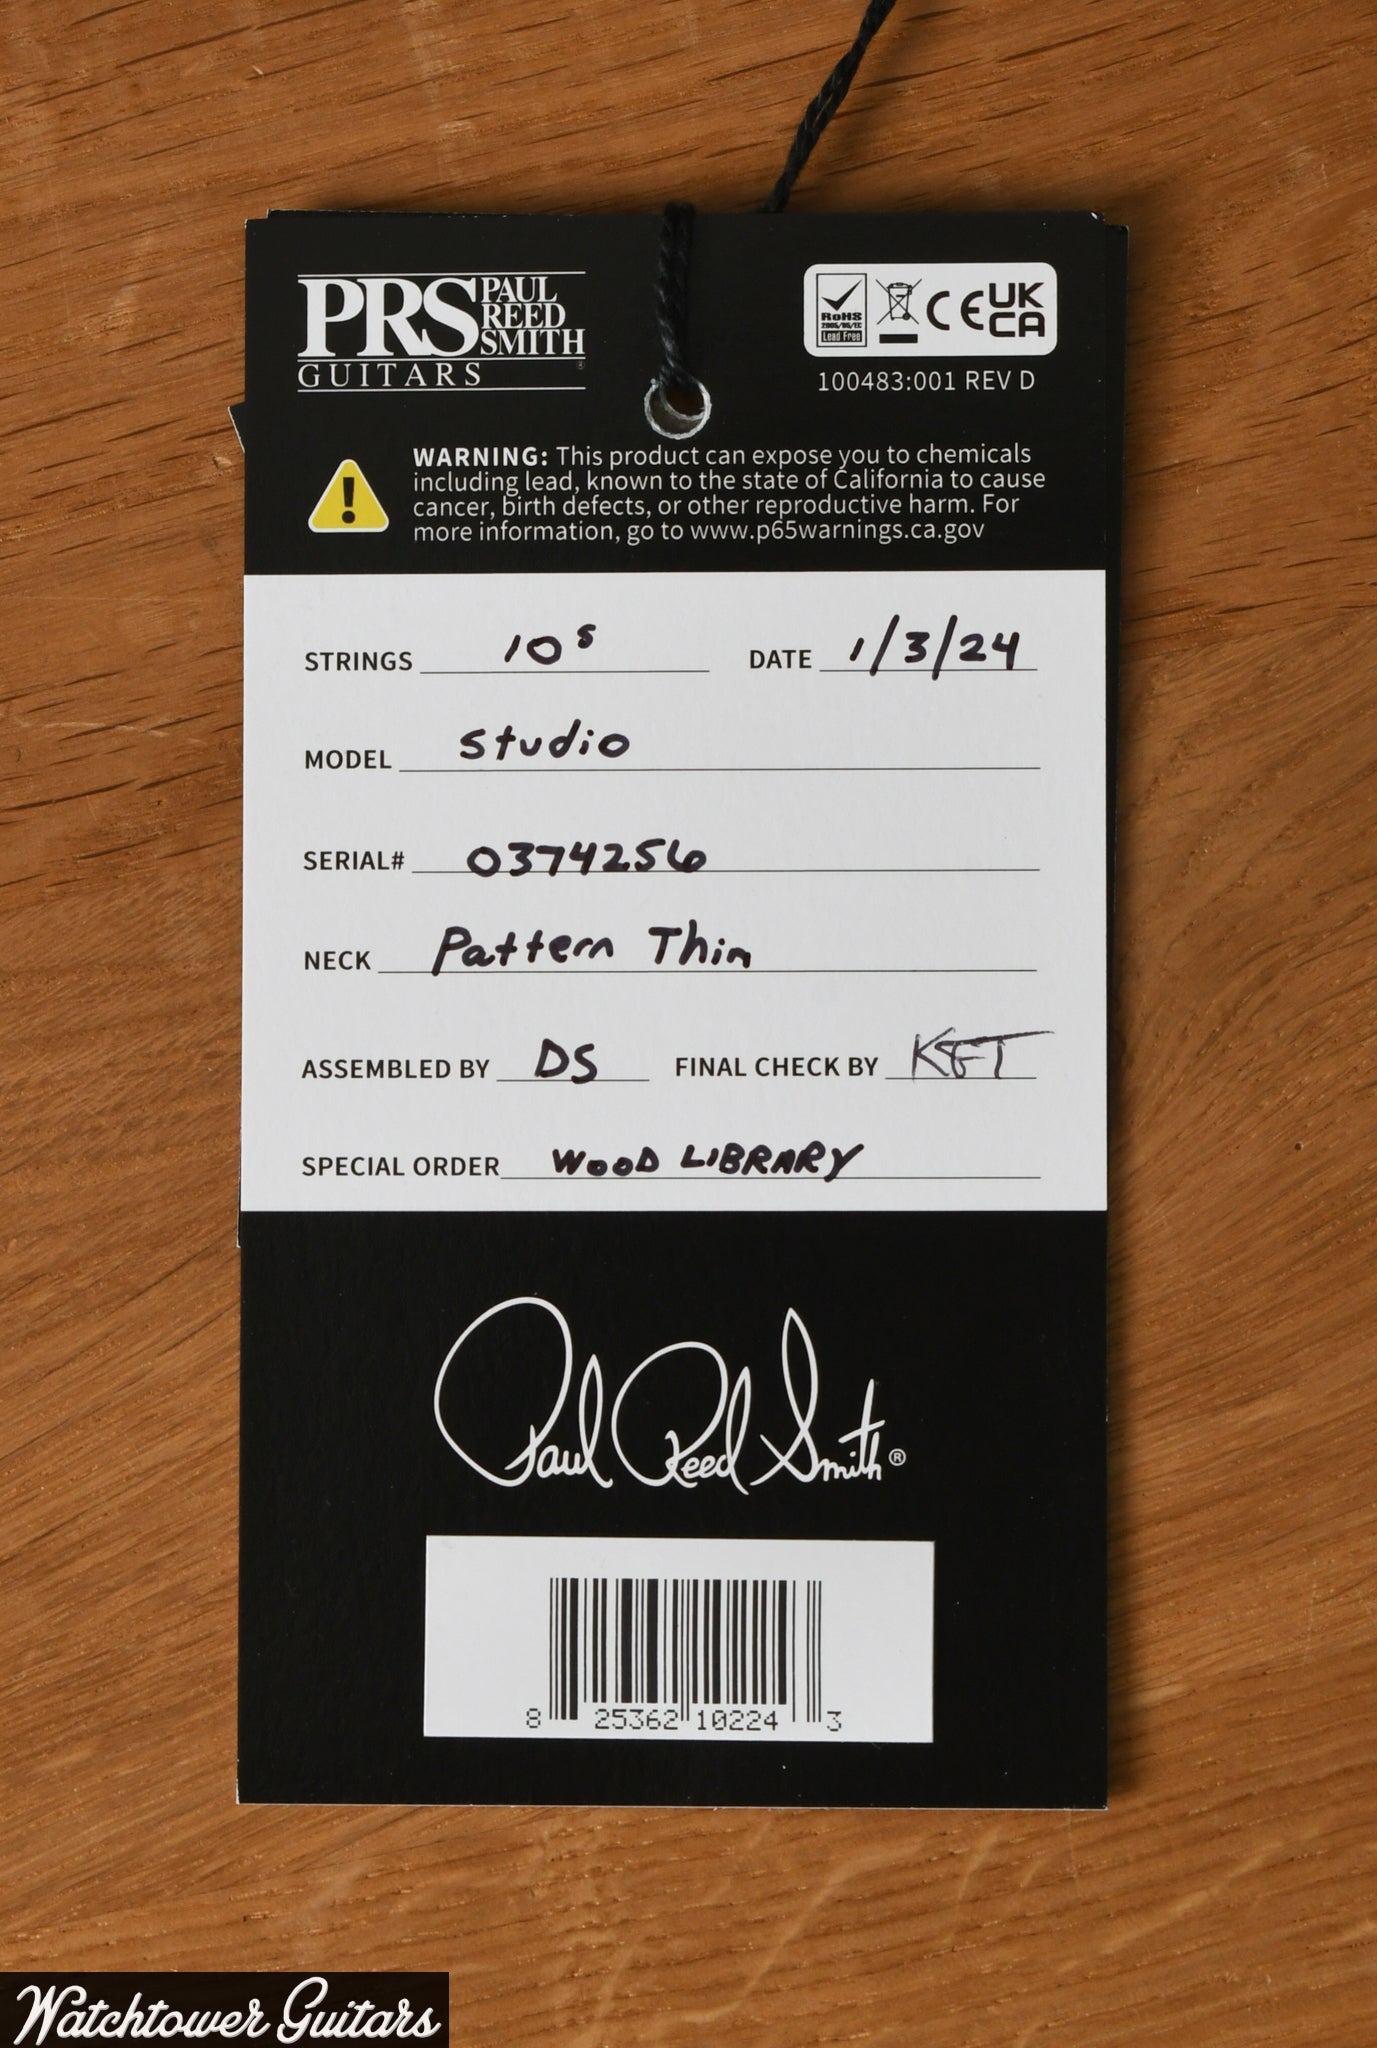 PRS PAUL REED SMITH
GUITARS
RoHS
2005/95/EC
Lead Free
CE UK CA
100483:001 REV D
WARNING: This product can expose you to chemicals
including lead, known to the state of California to cause
cancer, birth defects, or other reproductive harm. For
more information, go to www.p65warnings.ca.gov
STRINGS 10s DATE 1/3/24
MODEL Studio
SERIAL# 0374256
NECK Pattern Thin
ASSEMBLED BY DS FINAL CHECK BY
SPECIAL ORDER WOOD LIBRARY
Paul Reed Smith®
8 25362 10224 3
Watchtower Guitars